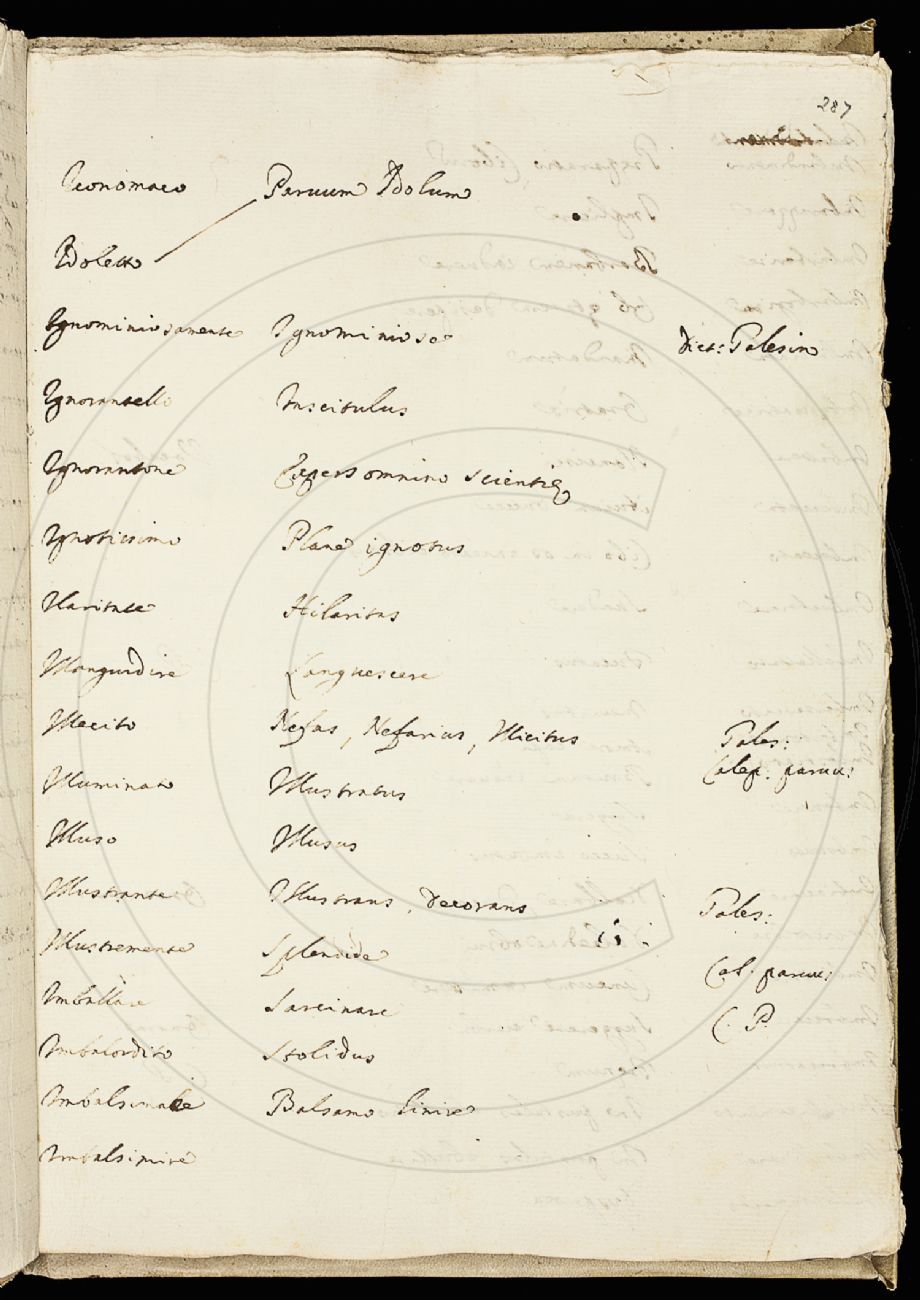 287
Iconomaco Parvum Idolum
Idoletto
Ignominiosamente Ignominiose Dict: Palesin
Ignorantello Inscitulus
Ignorantone Expers omnino scientiæ
Ignotissimo Plane ignotus
Ilaritate Hilaritas
Illanguidire Languescere
Illecito Nefas, Nefarius, Illicitus Pales:
Calep: parvu:
Illuminato Illustratus
Illuso Illusus
Illustrante Illustrans, Decorans Pales:
Illustremente Splendide Cal: parvu:
Imballare Sarcinare C. P.
Imbalordito Stolidus
Imbalsimare Balsamo linire
Imbalsimire